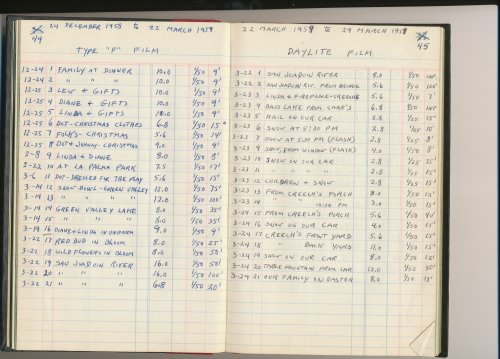 24 DECEMBER 1958 to 22 MARCH 1959
44
TYPE "F" FILM
12-24 1 FAMILY AT DINNER 10.0 1/50 9'
12-24 2 " " " 10.0 1/50 9'
12-25 3 LEW + GIFTS 10.0 1/50 9'
12-25 4 DIANE + GIFTS 10.0 1/50 9'
12-25 5 LINDA + GIFTS 10.0 1/50 9'
12-25 6 DOT-CHRISTMAS CLOTHES 6.8 1/50 15'
12-25 7 FOLKS-CHRISTMAS 5.6 1/50 14'
12-25 8 DOT+JOHNNY-CHRISTMAS 9.0 1/50 9'
2-8 9 LINDA + DIANE 8.0 1/50 8'
2-22 10 AT LA PALMA PARK 7.5 1/50 17'
3-6 11 DOT-DRESSED FOR THE PLAY 5.6 1/50 15'
3-14 12 SNOW BOWL-GREEN VALLEY 12.0 1/50 75'
3-14 13 " " " " 12.0 1/50 100'
3-14 14 GREEN VALLEY LAKE 8.0 1/50 35'
3-14 15 " " " 8.0 1/50 35'
3-19 16 DIANE+LINDA IN UNIFORM 9.0 1/50 9'
3-22 17 RED BUD IN BLOOM 8.0 1/50 25'
3-22 18 WILD FLOWERS IN BLOOM 8.0 1/50 30'
3-22 19 SAN JOAQUIN RIVER 16.0 1/50 50'
3-22 20 " " " 16.0 1/50 100'
3-22 21 " " " 6.8 1/50 20'
22 MARCH 1959 to 29 MARCH 1959
45
DAYLITE FILM
3-22 1 SAN JOAQUIN RIVER 8.0 1/50 100'
3-22 2 SAN JOAQUIN RIV. FROM BRIDGE 5.6 1/50 100'
3-22 3 LINDA + FIREPLACE-CREECHS 5.6 1/50 7'
3-23 4 BASS LAKE FROM CARP'S 6.8 1/50 100'
3-23 5 HAIL ON OUR CAR 2.8 1/25 15'
3-23 6 SNOW AT 5:30 PM 2.8 1/25 10'
3-23 7 SNOW AT 5:30 PM (FLASH) 2.8 1/25 8'
3-23 9 SNOW FROM WINDOW (FLASH) 4.0 1/50 7'
3-23 10 SNOW ON OUR CAR 2.8 1/25 15'
3-23 11 " " " " 2.8 1/25 15'
3-23 12 CHILDREN + SNOW 2.8 1/25 15'
3-23 13 FROM CREECH'S PORCH 8.0 1/50 12'
3-23 14 " " PM 3.0 1/50 15'
3-24 15 FROM CREECH'S PORCH 5.6 1/50 40'
3-24 16 SNOW ON OUR CAR 4.0 1/50 15'
3-24 17 CREECH'S FRONT YARD 5.6 1/50 15'
3-24 18 " BACK YARD 11.0 1/50 15'
3-24 19 SNOW ON OUR CAR 8.0 1/50 15'
3-24 20 TABLE MOUNTAIN FROM CAR 12.0 1/50 50'
3-24 21 OUR FAMILY ON EASTER 8.0 1/50 15'